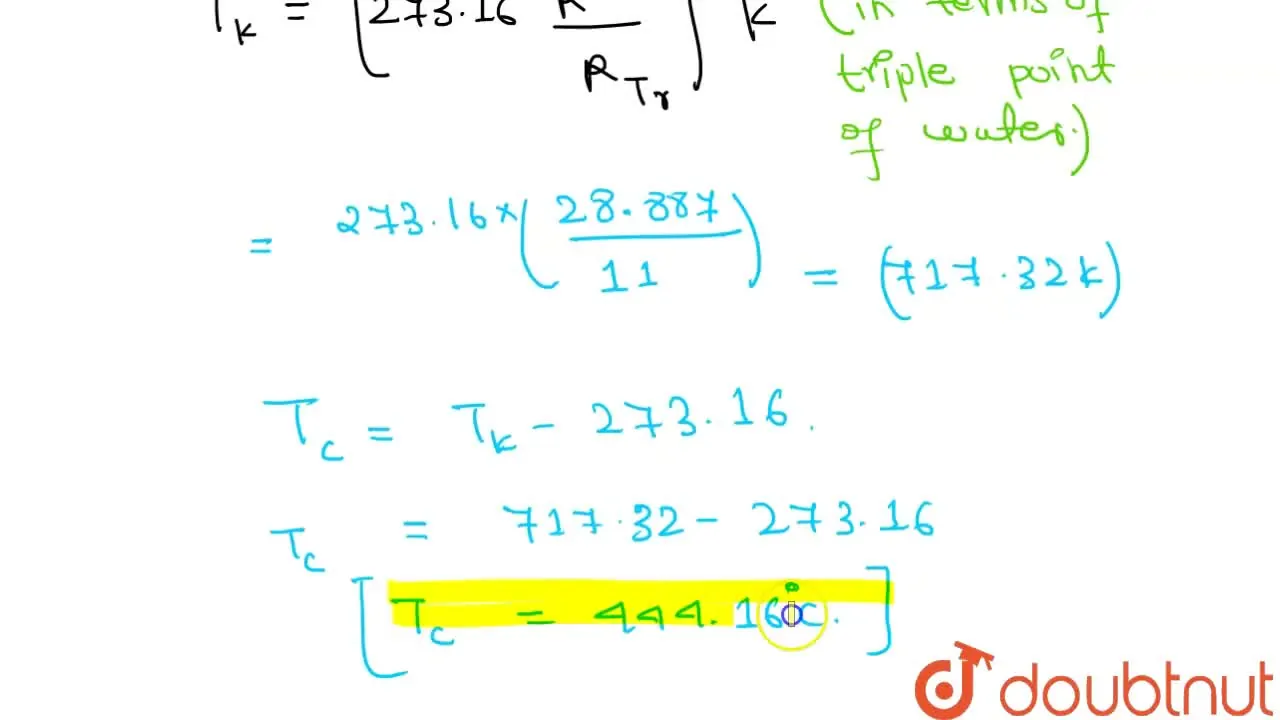 T_k = [273.16 R / R_Tr] k (in terms of
triple point
of water.)
= 273.16 × (28.887 / 11) = (717.32 k)
T_c = T_k − 273.16.
T_c = 717.32 − 273.16
[T_c = 444.16°c.]
doubtnut